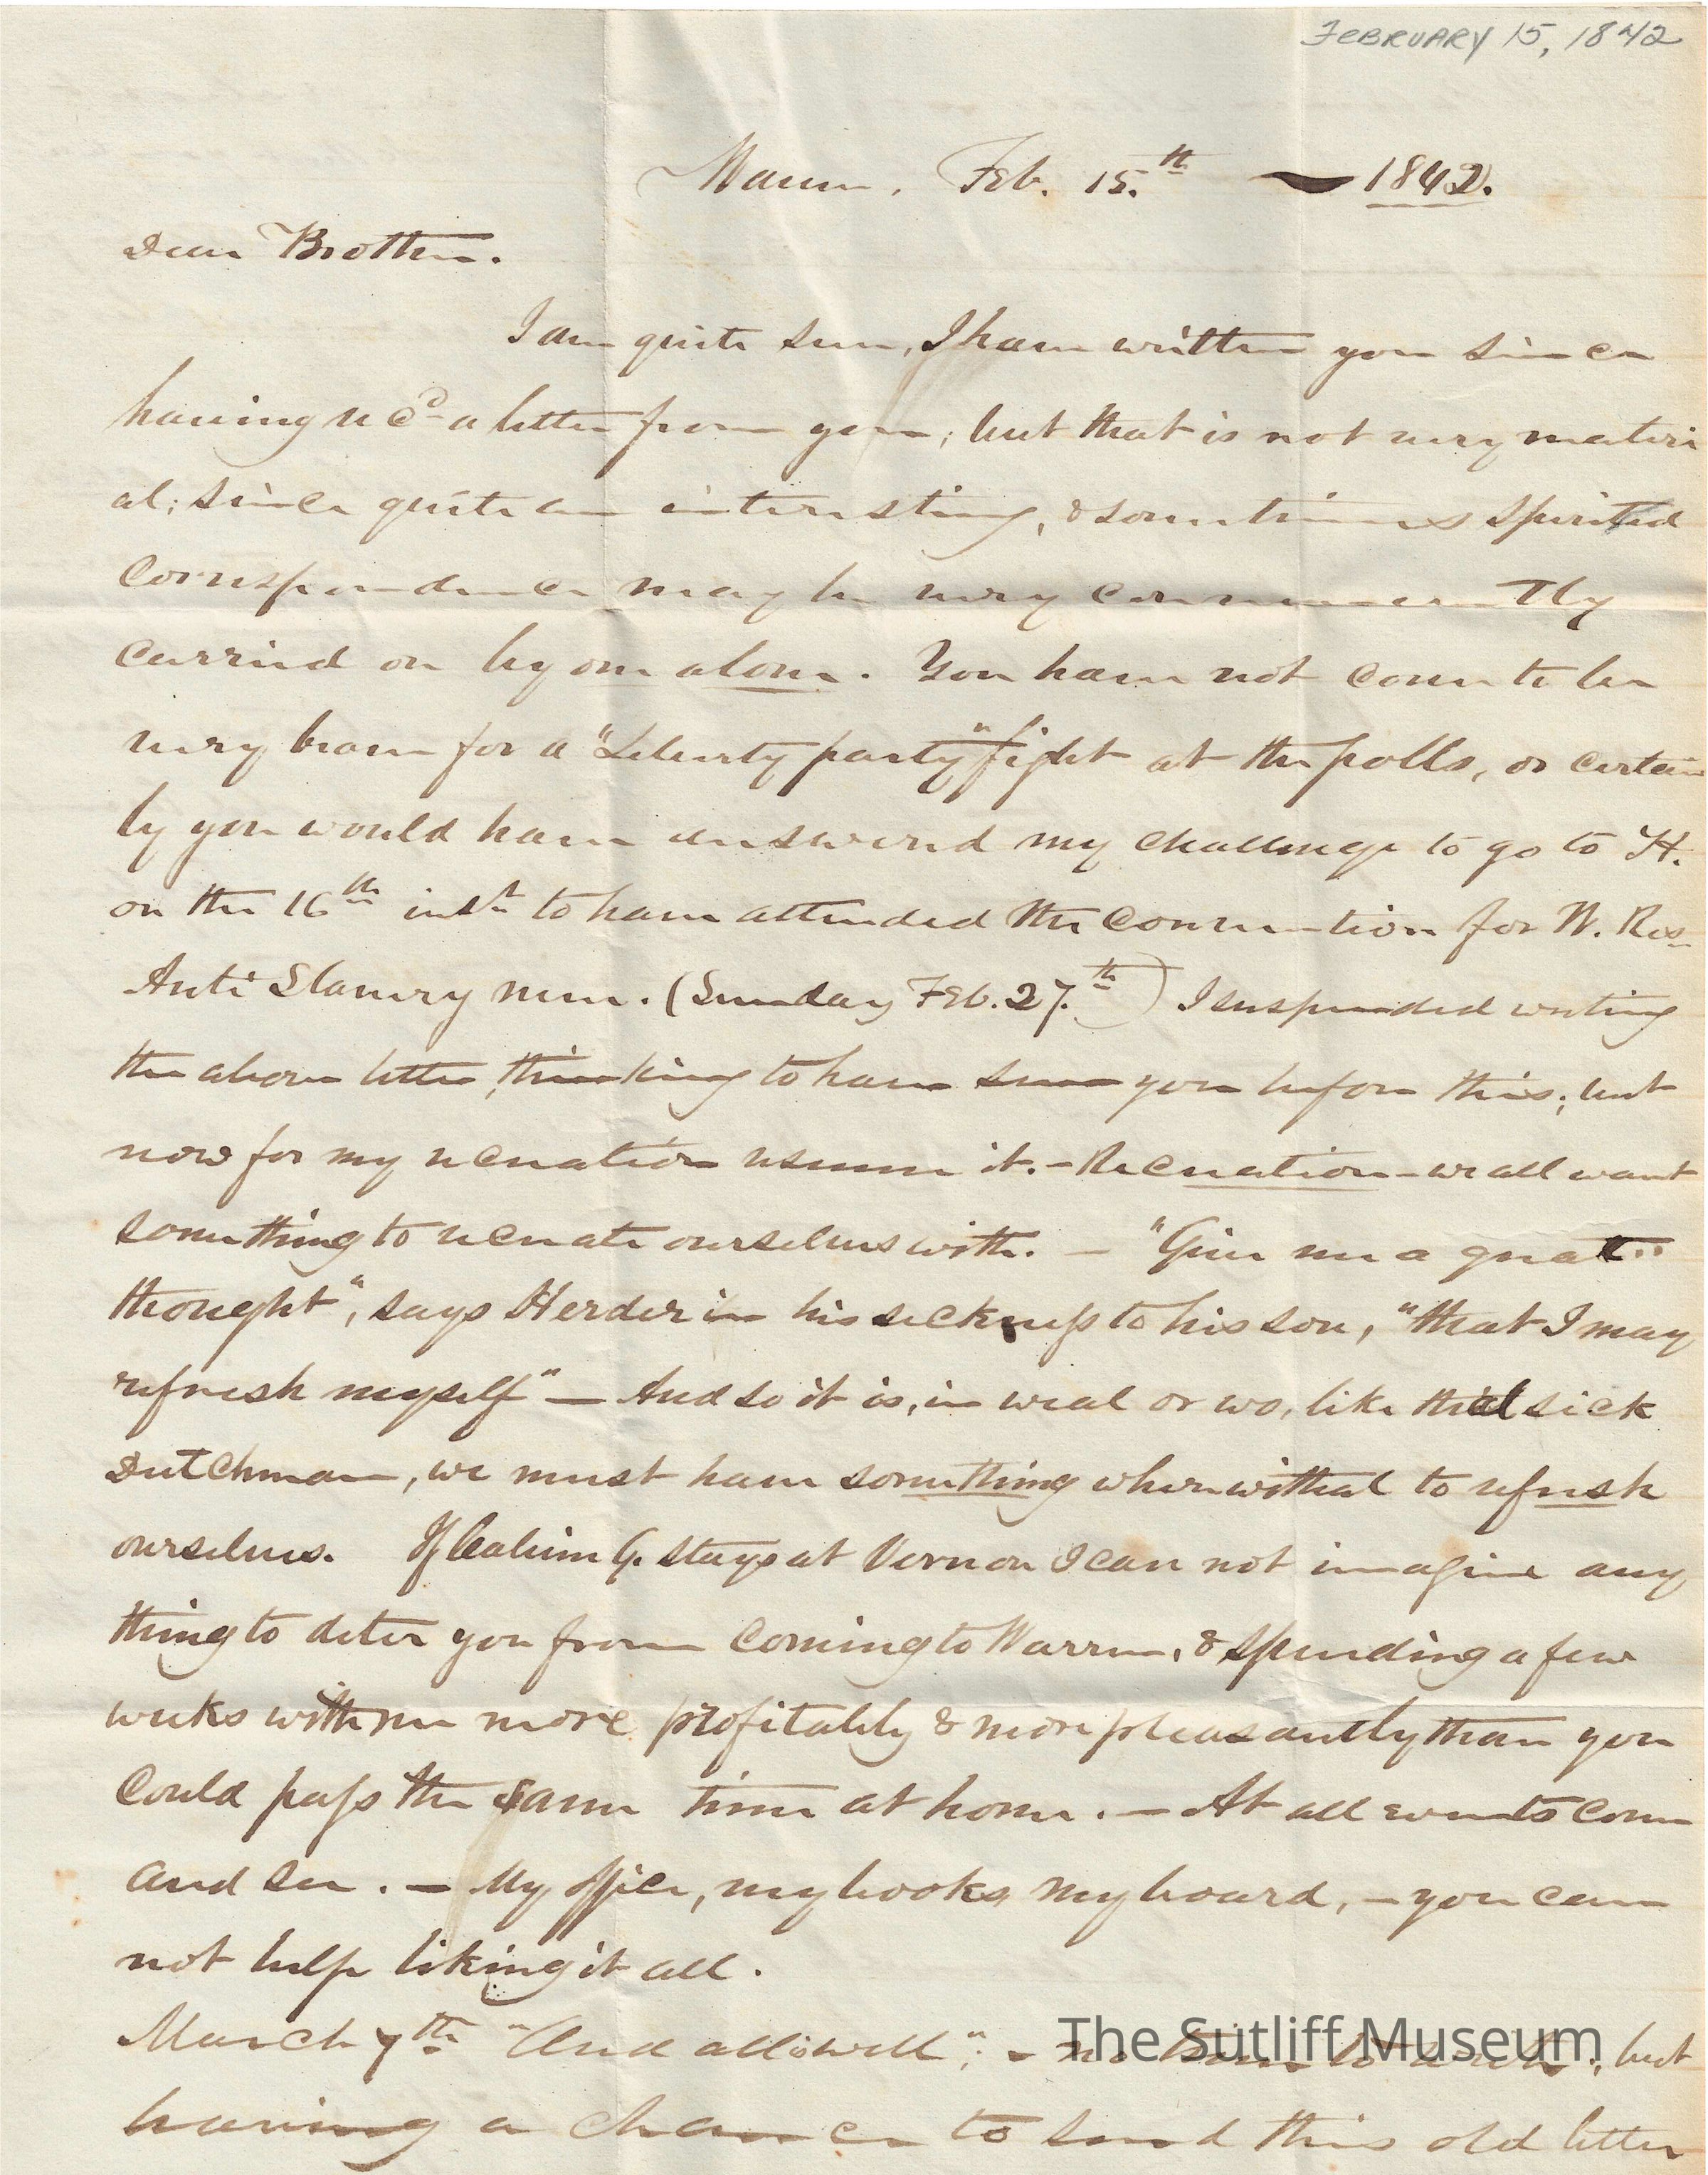 FEBRUARY 15, 1842
Warren, Feb. 15.th — 1842.
Dear Brother.
I am quite sure, I have written you since
having rec'd a letter from you; but that is not very materi
al; since quite an interesting, & sometimes spirited
correspondence may be very conveniently
carried on by one alone. You have not come to be
very brave for a "Liberty party" fight at the polls, or certain
ly you would have answered my challenge to go to H.
on the 16th inst to have attended the convention for W. Res
Anti Slavery men. (Sunday Feb. 27.th) I suspended writing
the above letter, thinking to have seen you before this; but
now for my recreation resume it. - Recreation - we all want
something to recreate ourselves with. — "Give me a great
thought", says Herder in his sickness to his son, "that I may
refresh myself" — And so it is, in weal or wo, like that sick
Dutchman, we must have something wherewithal to refresh
ourselves. If G. stays at Vernon I can not imagine any
thing to deter you from coming to Warren, & spending a few
weeks with me more profitably & more pleasantly than you
could pass the same time at home. — At all events come
and see. — My office, my books, my board, — you can
not help liking it all.
March 7th "And all is well"; - no time to ; but
having a chance to send this old letter
The Sutliff Museum